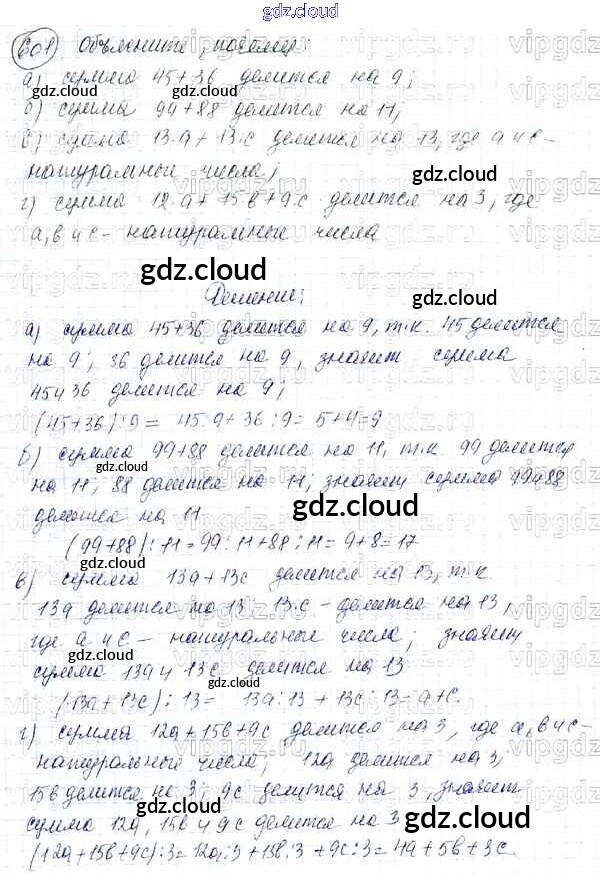 gdz.cloud
601) Объясните, почему:
а) сумма 45+36 делится на 9;
б) сумма 99+88 делится на 11;
в) сумма 13·а+13·с делится на 13, где а и с –
натуральные числа;
г) сумма 12·а+15в+9·с делится на 3, где
а, в и с – натуральные числа
Решение:
а) сумма 45+36 делится на 9, т.к. 45 делится
на 9; 36 делится на 9, значит сумма
45 и 36 делится на 9;
(45+36):9 = 45:9+36:9=5+4=9
б) сумма 99+88 делится на 11, т.к. 99 делится
на 11; 88 делится на 11; значит сумма 99 и 88
делится на 11
(99+88):11=99:11+88:11=9+8=17
в) сумма 13а+13с делится на 13, т.к.
13а делится на 13, 13·с – делится на 13,
где а и с – натуральные числа; значит
сумма 13а и 13с делится на 13
(13а+13с):13= 13а:13+13с:13=а+с.
г) сумма 12а+15в+9с делится на 3, где а, в и с –
натуральные числа; 12а делится на 3,
15в делится на 3; 9с делится на 3, значит
сумма 12а, 15в и 9с делится на 3
(12а+15в+9с):3=12а:3+15в:3+9с:3=4а+5в+3с.